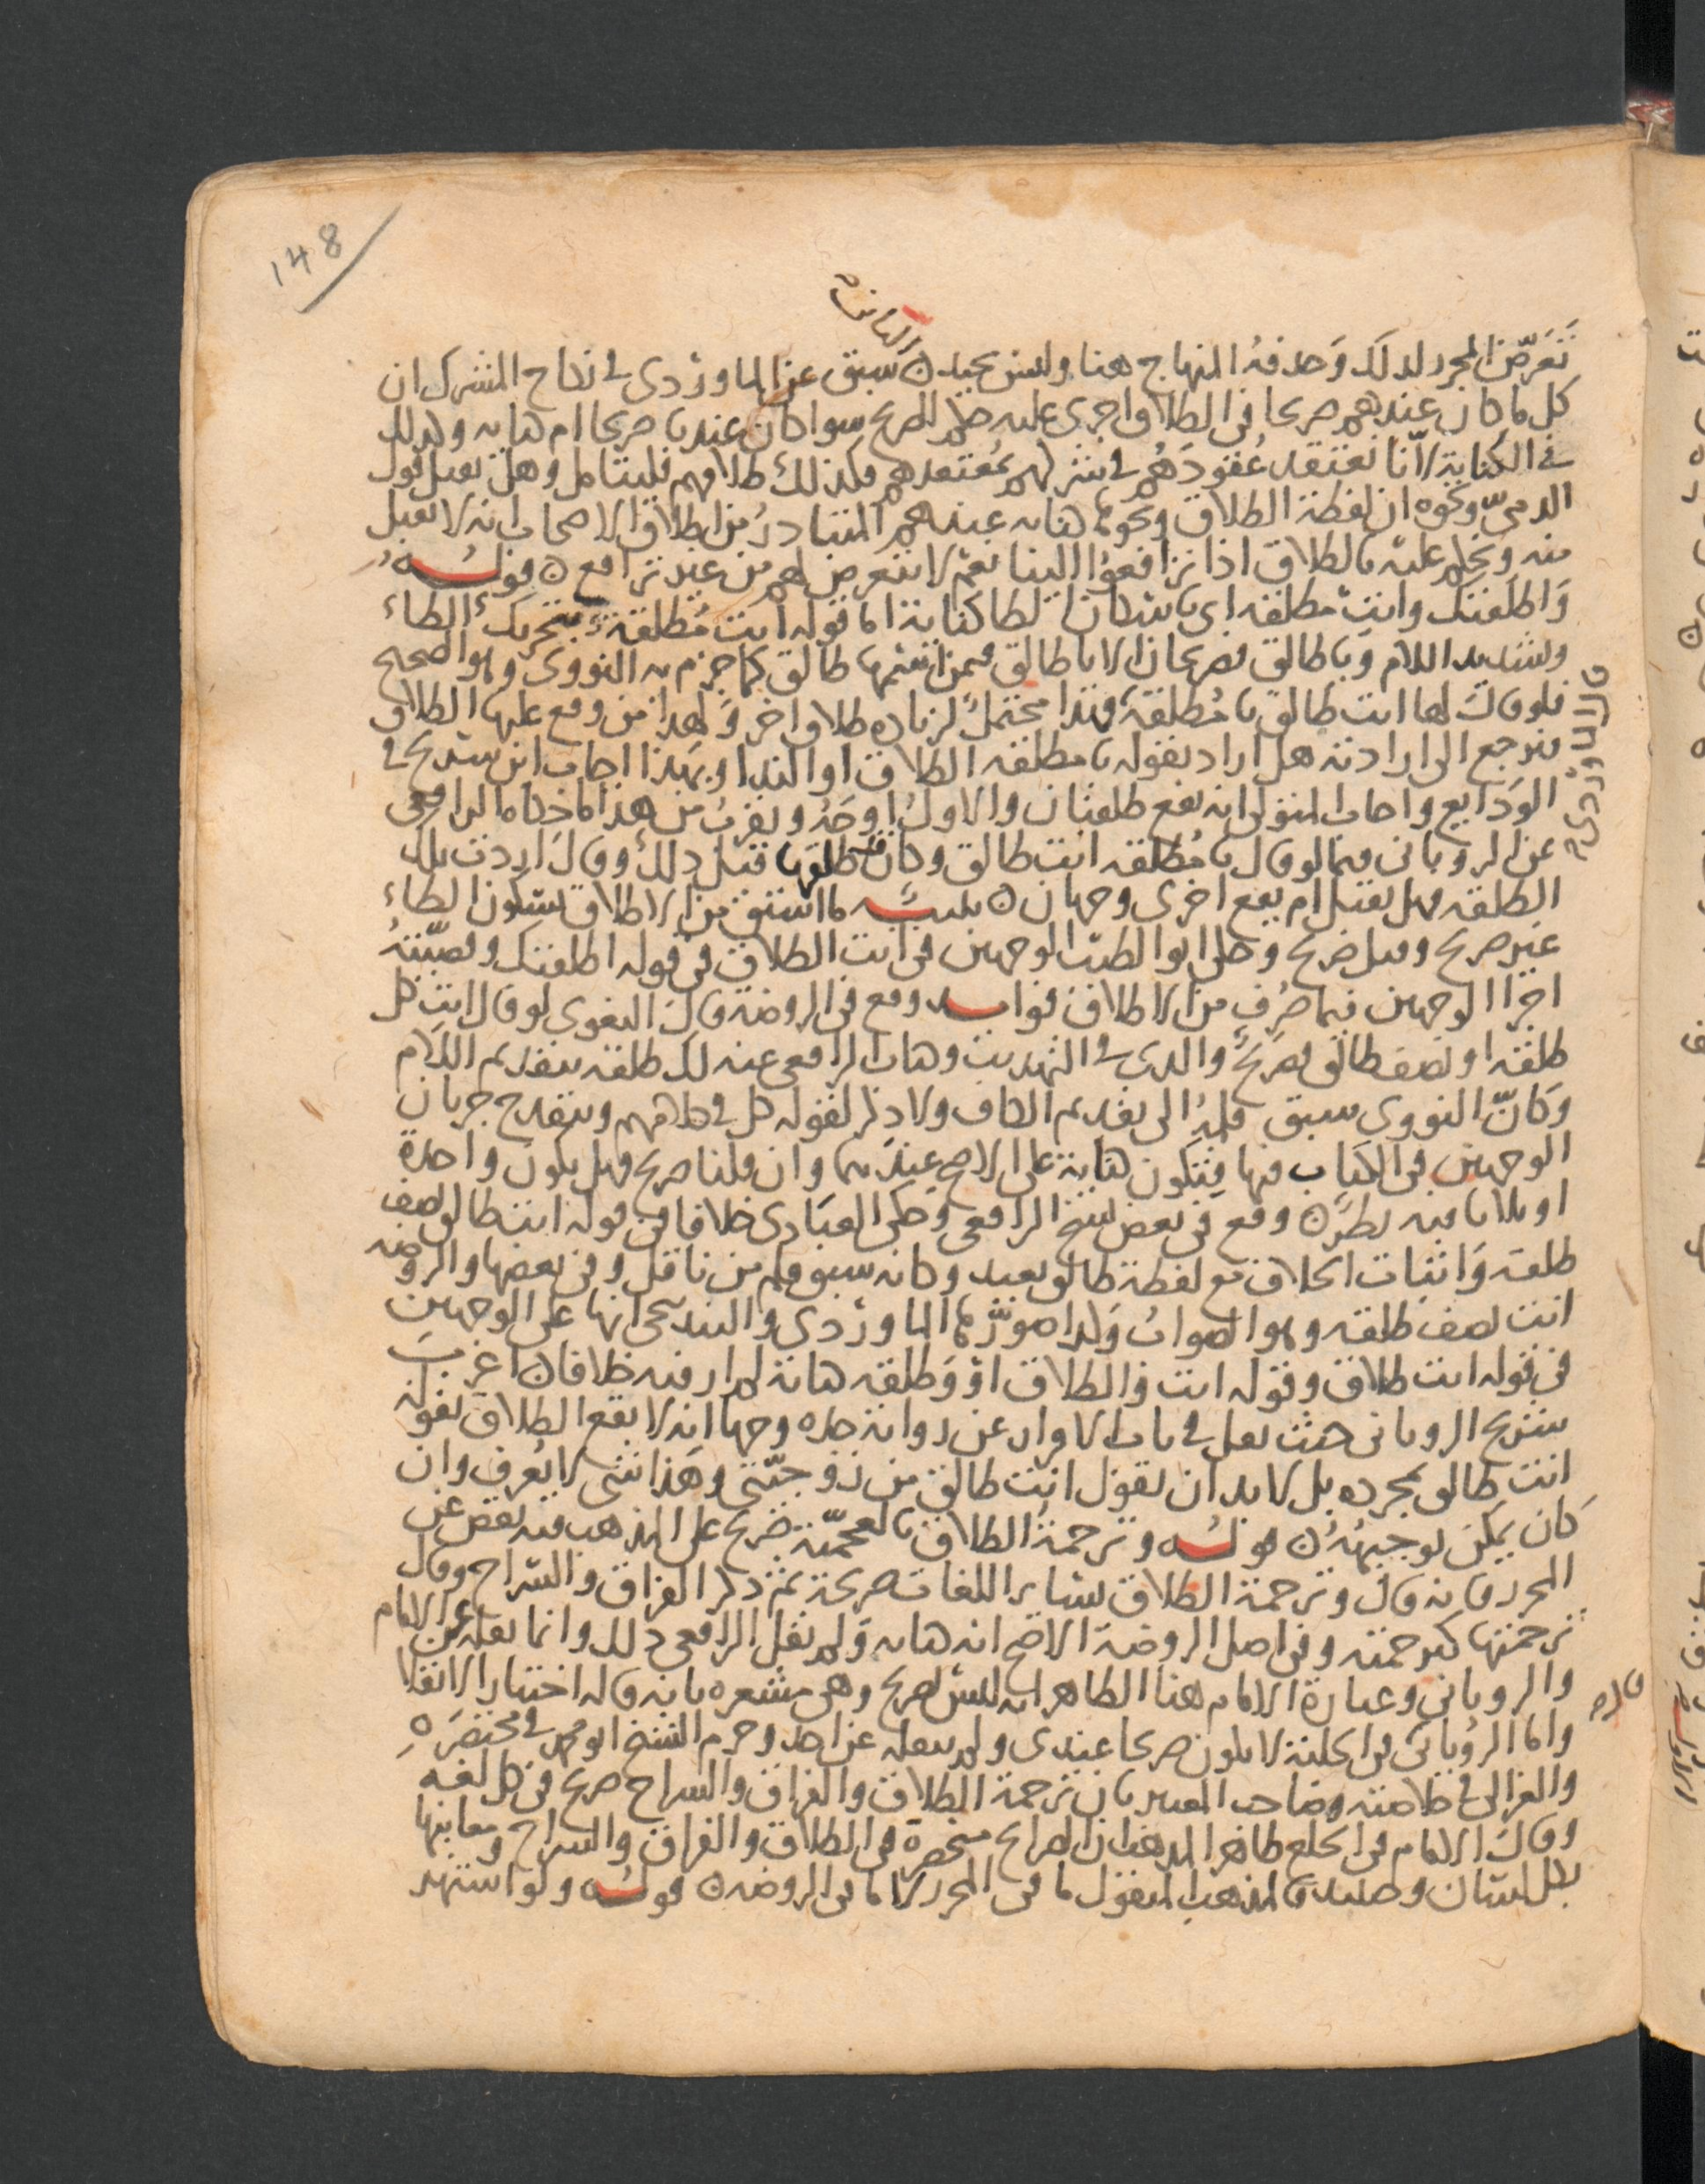 148
الثانية
تعرّض المحرر لذلك وحذفهُ المنهاج هنا وليس بجيد ن سبق عن الماوردى فى نكاح المشرك ان
كل ما كان عندهم صريحا فى الطلاق اجرى عليه حكم الصريح سوا كان عندنا صريحا ام كنايه وكذلك
فى الكناية لانّا نعتقد عُقودَهُم فى شركهم بمُعتقدهم فكذلك طلاقهم فليتامل وهل نقبل قول
الذمىّ ونحوه ان لفظة الطلاق ونحوها كنايه عندهم المتبادرُ من اطلاق الاصحاب انه لا نقبل
منه ونحكم عليه بالطلاق اذا ترافعوُا الينا نعم لا نتعرض لهم من غير ترافع ن قولــه
وَاطلقتك وانتِ مطلقه اى باسكان الطا كناية اما قوله انت مُطلقة بتحريك الطاء
وتشديد اللام وَيا طالق فصريحان الا يا طالق فيمن اسمها طالق كما جزم به النووى وهو الصحيح
فلو قال لها انت طالق يا مُطلقة فندا محتمل لزياده طلاق اخر وَلهذا من وقع عليها الطلاق
فنرجع الى ارادته هل اراد بقوله يا مطلقه الطلاق او الندا وبهذا اجاب ابن سريج فى
الوَدايع واجاب المتولى انه يقع طلقتان والاول اوجَهُ ويقربُ من هذا ما حكاه الرافعى
عن الرويانى فيما لو قال يا مُطلقه انت طالق وكان قد طلقها قبل ذلك وقال اردت بتلك
الطلقه فهل يقبل ام يقع اخرى وجهان ن تنبيــه ما اشتق من الاطلاق بسكون الطاء
غير صريح وقيل صريح وحكى ابو الطيب الوجهين فى انت الطلاق فى قوله اطلقتك وقضيّتهُ
اجرا الوجهين فيما صُرف من الاطلاق فوايــد وقع فى الروضة قال البغوى لو قال انت كل
طلقة او نصف طالق فصريح والذى فى التهذيب وكتاب الرافعى عنه لك طلقه بتقديم اللام
وكانّ النووى سبق قلمهُ الى تقديم الكاف ولا ذكر لقوله كل فى كلامهم وينقدح جريان
الوجهين فى الكتاب فيها فتكون كناية على الاصح عندهما وان قلنا صريح فهل يكون واحدة
او ثلاثا فيه نظر ن وقع فى بعض نسخ الرافعى وحكى العبّادى خلافا فى قوله انت طالق نصف
طلقه وَاثبات الخلاف مع لفظة طالق بعيد وكانه سبق قلم من ناقل وفى بعضها والروضه
انت نصف طلقه وهو الصواب وكذا صوّرها الماوردى والبندنيجى انها على الوجهين
فى قوله انت طلاق وقوله انت والطلاق اوْ وَطلقه كناية لم ار فيه خلافا ن اغربَ
شريح الرويانى حيث نقل فى باب الاقرار عن رواية جده وجها انه لا يقع الطلاق بقوله
انت طالق بمجرده بل لا بد ان يقول انت طالق من زوجيّتى وهذا شى لا يعرف وان
كان يمكن توجيههُ ن قولــه وترجمة الطلاق بالعجميّة صريح على المذهب فيه نقص عن
المحرر فانه قال وترجمة الطلاق بسائر اللغات صريحة ثم ذكر الفراق والسراح وقال
ترجمتها كترجمته وفى اصل الروضة الاصح انه كنايه ولم ينقل الرافعى ذلك وانما نقله عن الامام
والرويانى وعبارة الامام هنا الظاهر انه ليس بصريح وهى مشعره بانه قاله اختيارا لا نقلا
واما الرُويانى فى الحلية لا يكون صريحا عندى ولم ينقله عن احد وجزم الشيخ ابو محمد فى مختصرَه
والغزالى فى خلاصته وصاحب المعين بان ترجمة الطلاق والفراق والسراح صريح فى كل لغه
وقال الامام فى الخلع ظاهر المذهب ان الصرايح منحصرة فى الطلاق والفراق والسراح ومعانيها
بكل لسان وحينئذ فالمذهب المنقول ما فى المحرر لا ما فى الروضه ن قولــه ولو اشتهر
قال الماوردى